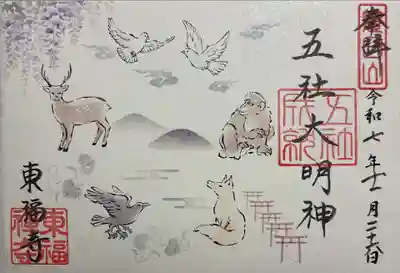 奉拝
令和七年十一月二十六日
五社大明神
五社
東福寺
東福寺